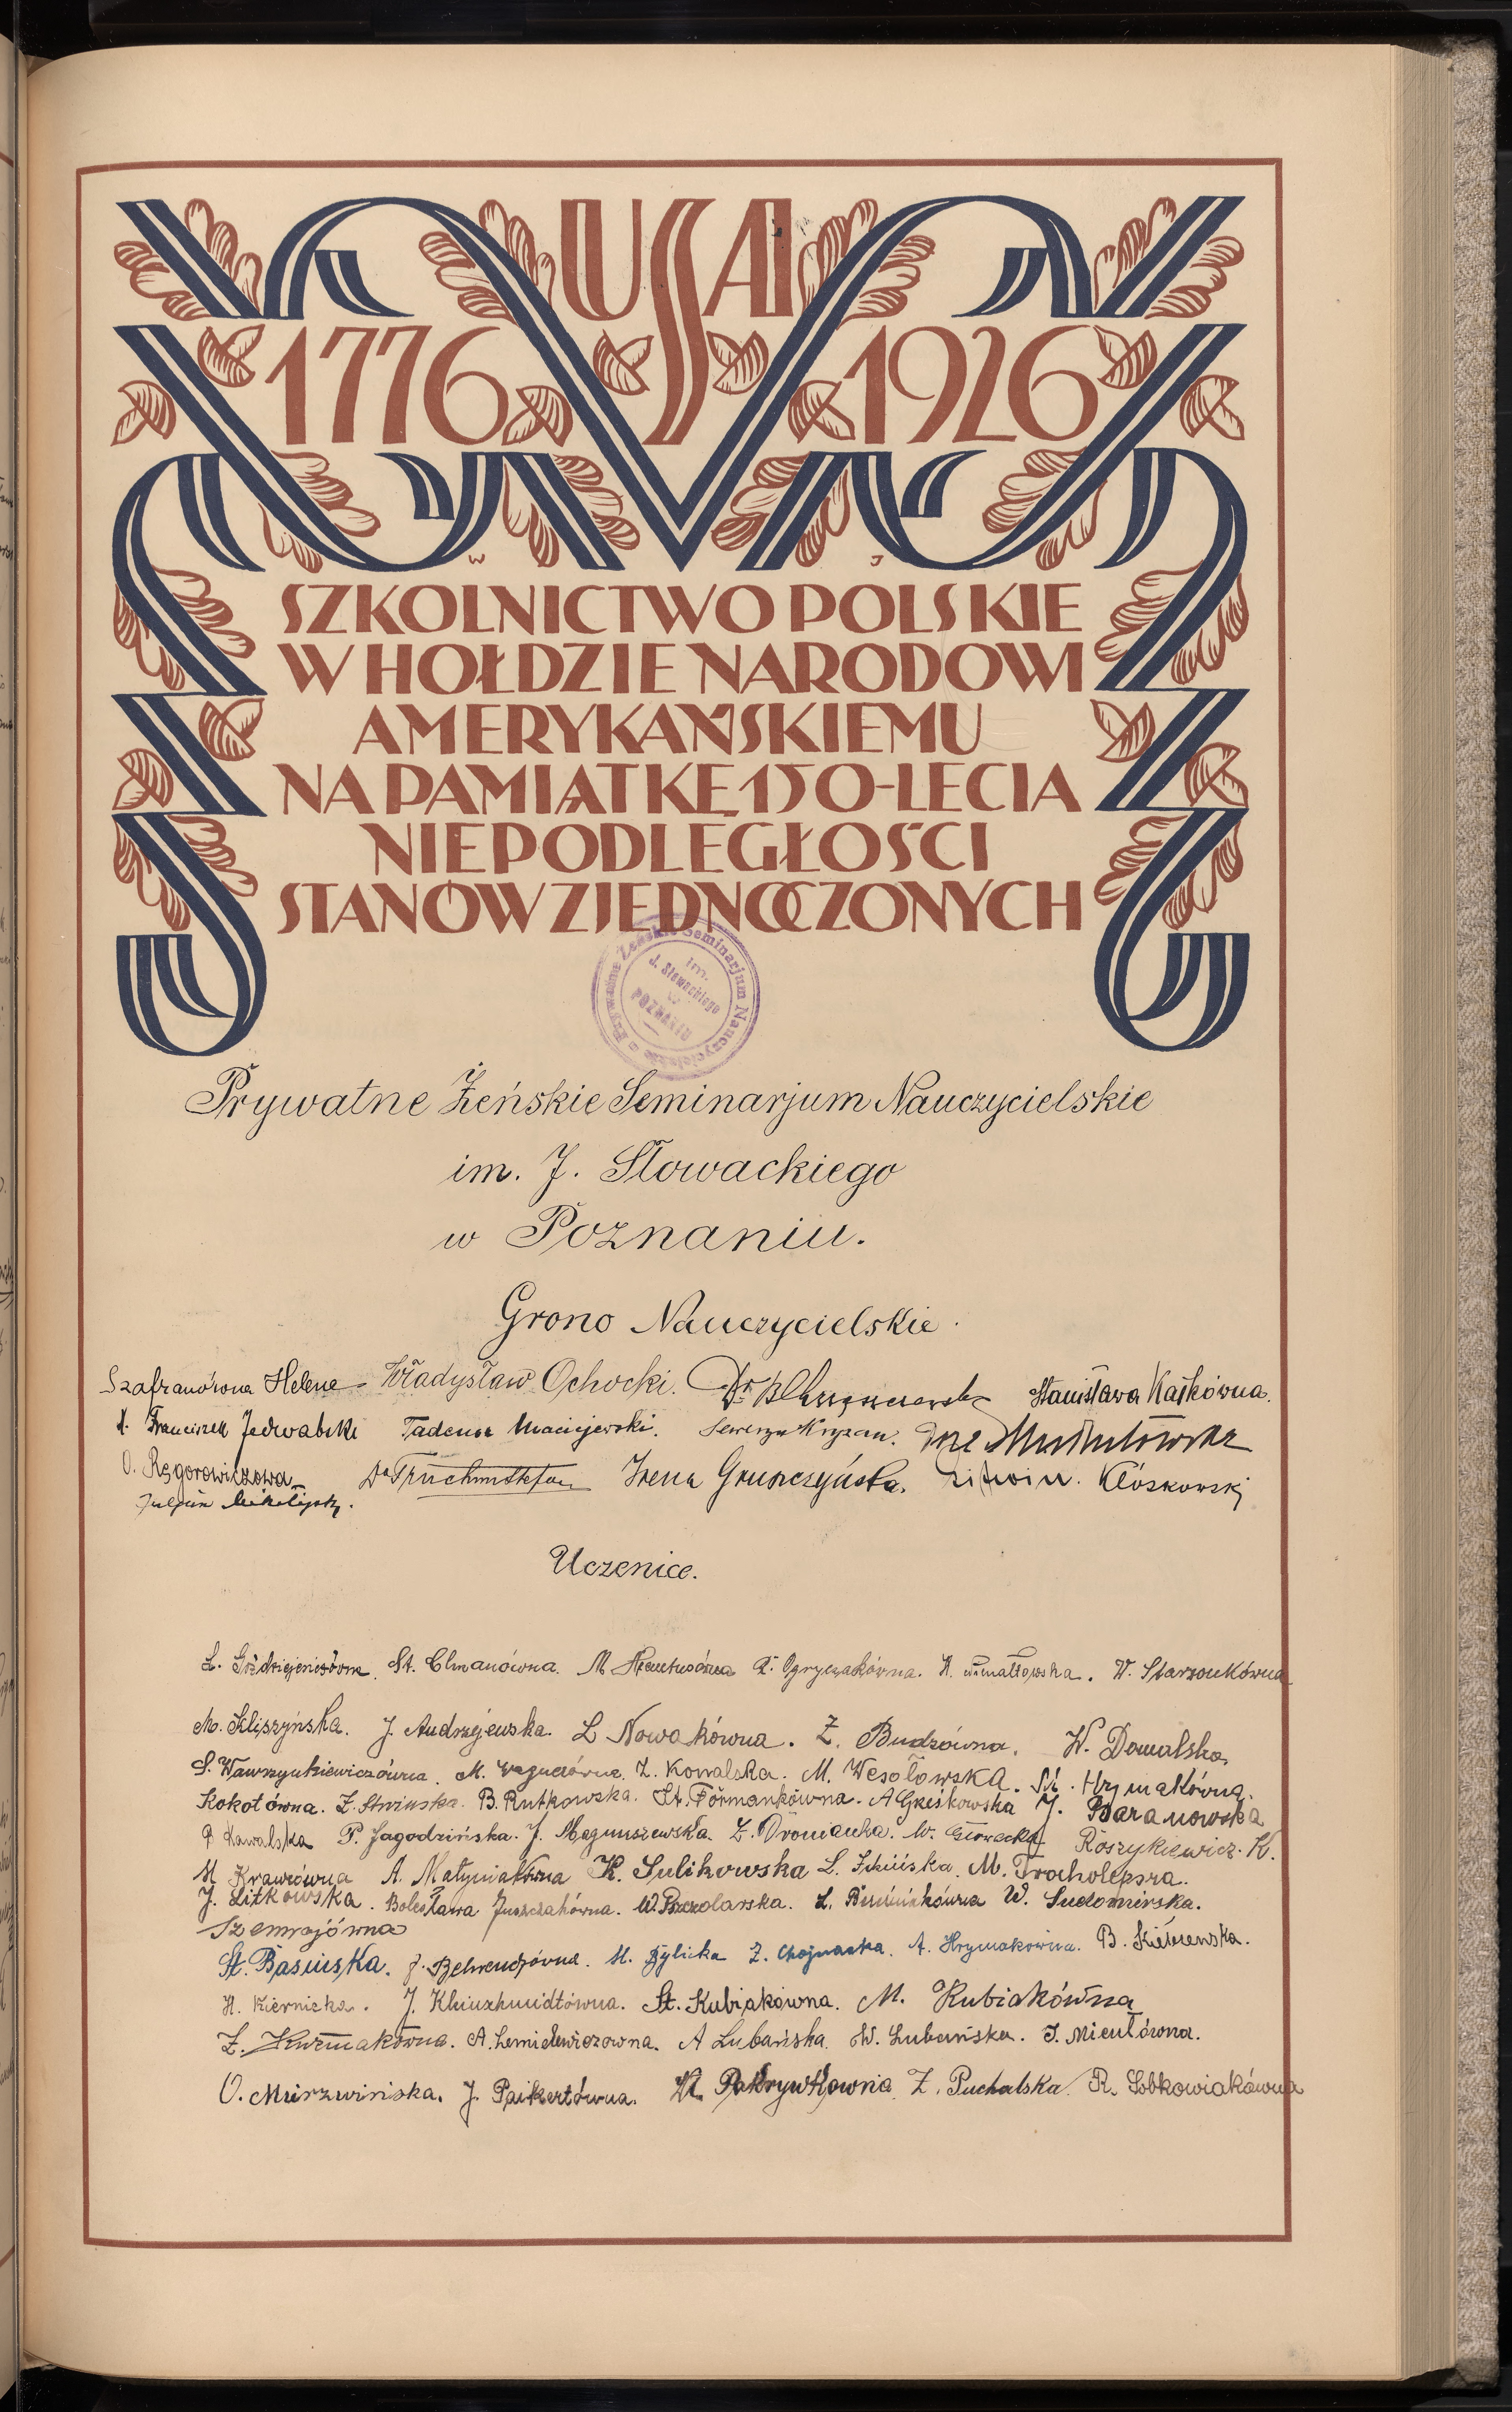 USA
1776 1926
W J
SZKOLNICTWO POLSKIE
W HOŁDZIE NARODOWI
AMERYKAŃSKIEMU
NA PAMIĄTKĘ 150-LECIA
NIEPODLEGŁOŚCI
STANÓW ZJEDNOCZONYCH
Prywatne Żeńskie Seminarjum Nauczycielskie
im. J. Słowackiego
w POZNANIU
Prywatne Żeńskie Seminarjum Nauczycielskie
im. J. Słowackiego
w Poznaniu.
Grono Nauczycielskie.
Szafranówna Helena Władysław Ochocki. Dr. B Stanisława Kaśkówna.
X. Franciszek Jedwabski Tadeusz Maciejewski. Seweryn Kryzan.
O. Ręgorowiczowa Dr Irena Grunczyńska. Litwin. Kłóskowski
Uczenice.
St. Elmanówna. M. Z. Ogryczakówna. W. Starzonkówna
M. Kliszyńska. J. Andrzejewska. L Nowakówna. Z. Budzówna. W. Domalska
S. Wawrzynkiewiczówna. M. Z. Kowalska. M. Wesołowska. St. Hrymakówna.
Kokotówna. Z. B. Rutkowska. St. Förmankówna. A Greśkowska J. Baranowska
P. Kawalska P. Jagodzińska. J. Magnuszewska. Z. W. Głowacka Roszykiewicz. K.
M Krawcówna A. Matyniakówna K. Sulikowska L. M. Trocholepsza.
J. Litkowska. Bolesława Juszczakówna. W. L. W. Sudomirska.
Szemrajówna
St. Basińska. J. Behrendtówna. M. Bylicka Z. Chojnacka. A. Hrymakowna. B.
H. Kiernicka. J. St. Kubiakówna. M. Kubiakówna
Z. A. A Lubańska. W. Lubańska. J. Mieulówna.
O. Mierzwińska. J. Paikertówna. Z. Puchalska. R. Sobkowiakówna